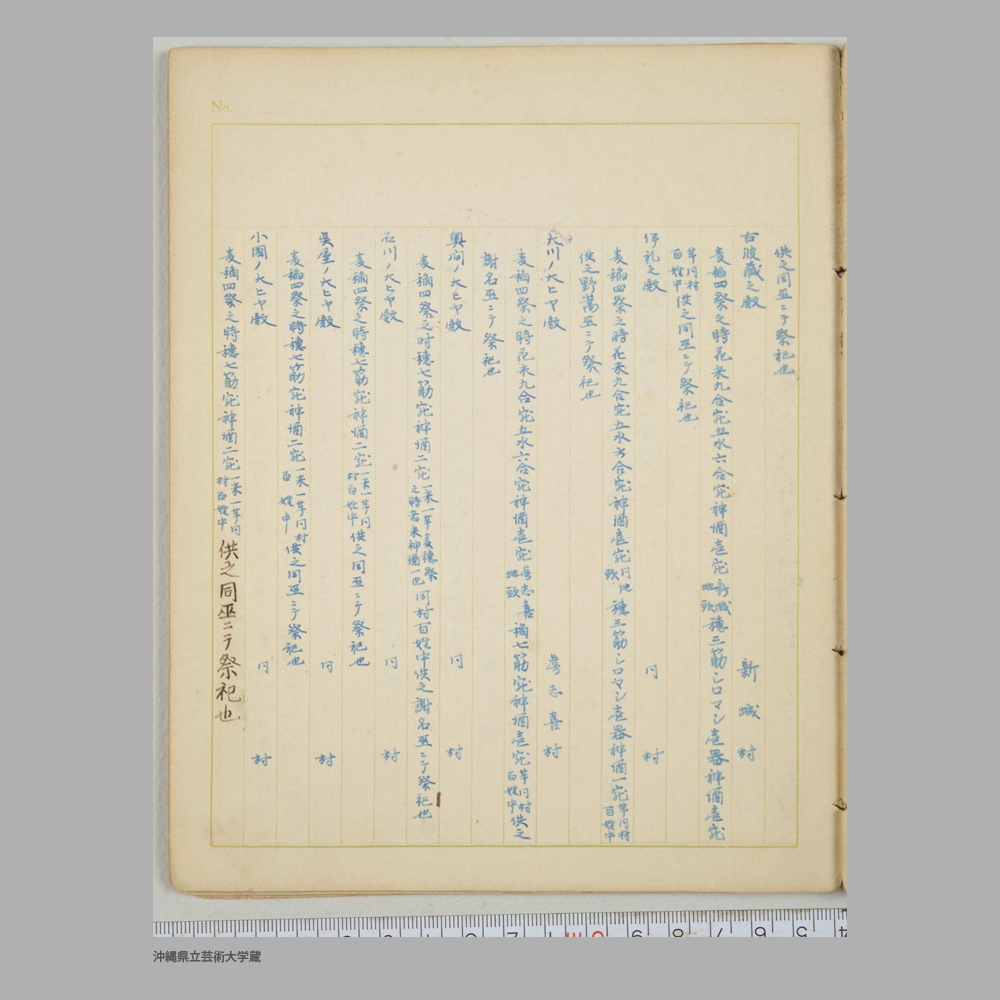 No.
供之同巫ニテ祭祀也
古波蔵之殿 新城村
麦稲四祭之時花米九合宛五水六合宛神酒壱宛新城地頭穂三筋シロマシ壱器神酒壱宛
芋同村百姓中供之同巫ニテ祭祀也
伊礼之殿 同村
麦稲四祭之時花米九合宛五水六合宛神酒壱宛同地頭穂三筋シロマシ壱器神酒一宛芋同村百姓中
供之野嵩巫ニテ祭祀也
大川ノ大ヒヤ殿 喜志喜村
麦稲四祭之時花米九合宛五水六合宛神酒壱宛喜志喜地頭稲七筋宛神酒壱宛芋同村百姓中供之
謝名巫ニテ祭祀也
奥間ノ大ヒヤ殿 同村
麦稲四祭之時穂七筋宛神酒二宛一米一芋麦穂祭之時者米神酒一也同村百姓中供之謝名巫ニテ祭祀也
石川ノ大ヒヤ殿 同村
麦稲四祭之時穂七筋宛神酒二宛一米一芋同村百姓中供之同巫ニテ祭祀也
呉屋ノ大ヒヤ殿 同村
麦稲四祭之時穂七筋宛神酒二宛一米一芋同村百姓中供之同巫ニテ祭祀也
小國ノ大ヒヤ殿 同村
麦稲四祭之時穂七筋宛神酒二宛一米一芋同村百姓中供之同巫ニテ祭祀也
沖縄県立芸術大学蔵